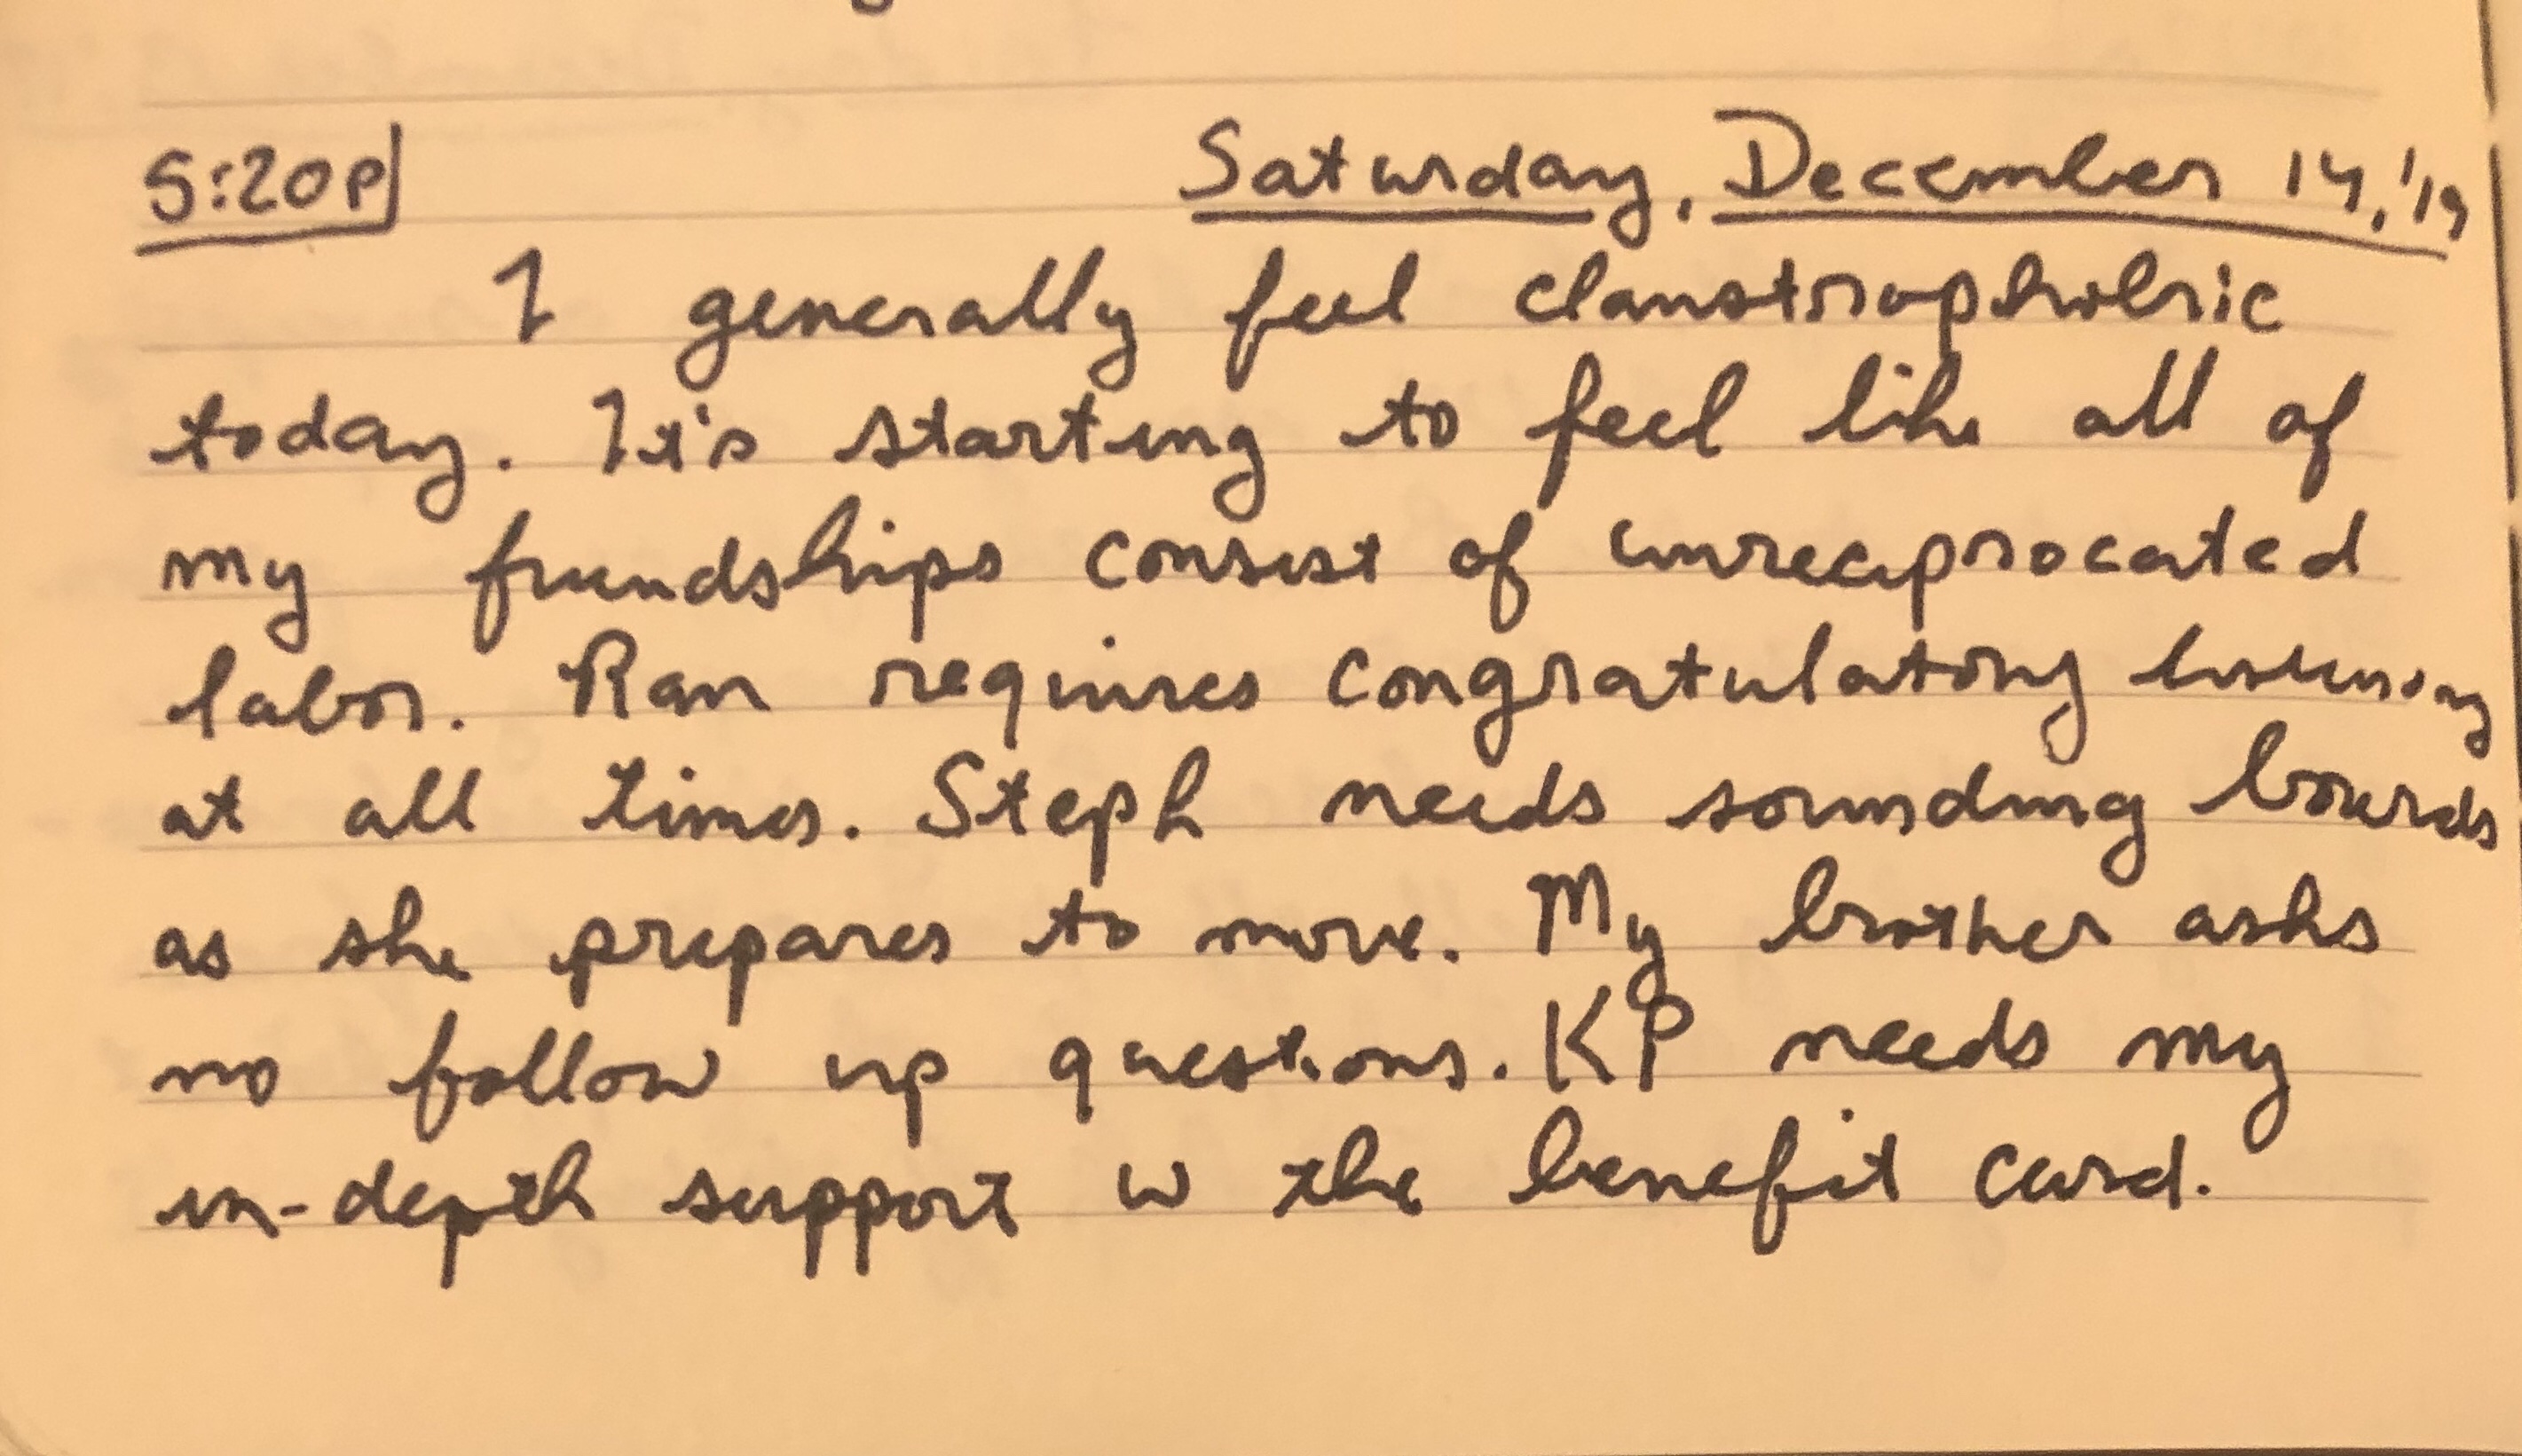 5:20P Saturday, December 14, '19
I generally feel claustrophobic
today. It's starting to feel like all of
my friendships consist of unreciprocated
labor. Ran requires congratulatory listening
at all times. Steph needs sounding boards
as she prepares to move. My brother asks
no follow up questions. KP needs my
in-depth support w the benefit card.